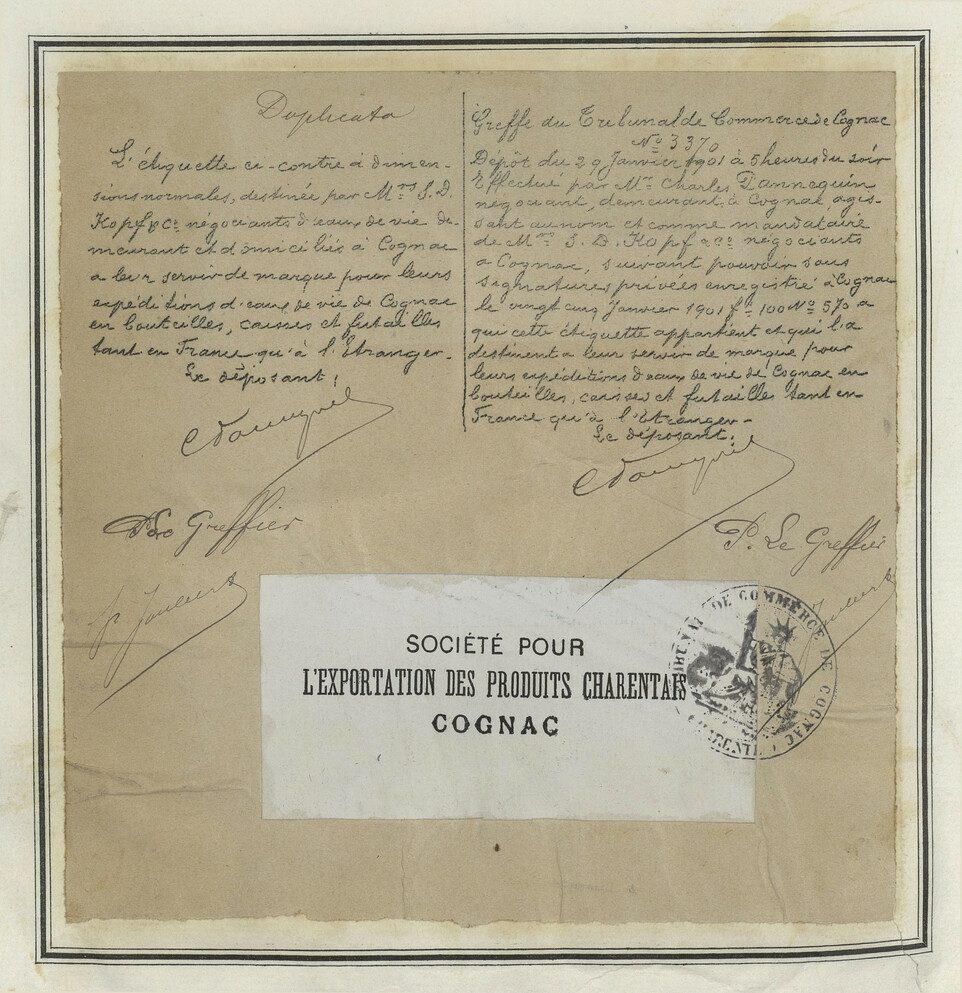 Duplicata
L'étiquette ci-contre à dimen-
sions normales, destinée par Mrs S. D.
Kopf & Co négociants d'eaux de vie de-
meurant et domiciliés à Cognac
a leur servir de marque pour leurs
expéditions d'eaux de vie de Cognac
en bouteilles, caisses et futailles
tant en France qu'à l'Etranger-
Le déposant,
Greffe du Tribunal de Commerce de Cognac
No 3370
Dépôt du 29 Janvier 1901 à 5 heures du soir
Effectué par Mr Charles Dannequin
négociant, demeurant à Cognac, agis-
sant au nom et comme mandataire
de Mrs S. D. Kopf & Co négociants
a Cognac, suivant pouvoir sous
signatures privées enregistré à Cognac
le vingt cinq Janvier 1901 fo 100 No 570 a
qui cette étiquette appartient et qui l'a
destinent a leur servir de marque pour
leurs expéditions d'eaux de vie de Cognac en
bouteilles, caisses et futailles tant en
France qu'à l'Etranger-
Le déposant,
Le Greffier
P. Le Greffier
SOCIÉTÉ POUR
L'EXPORTATION DES PRODUITS CHARENTAIS
COGNAC
TRIBUNAL DE COMMERCE DE COGNAC
CHARENTE